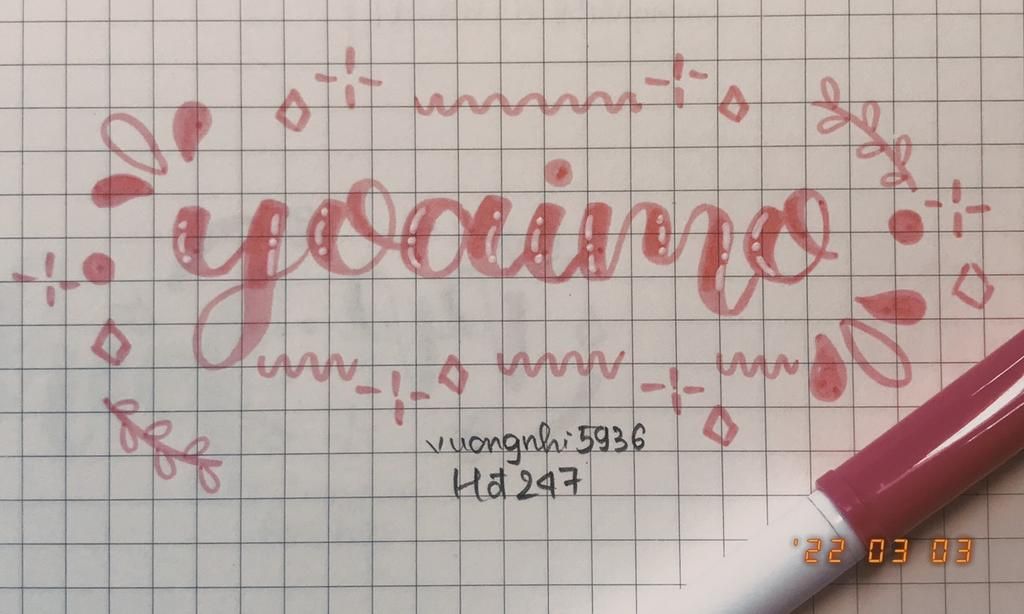 yooimo
vuongnhi5936
Hđ 247
'22 03 03